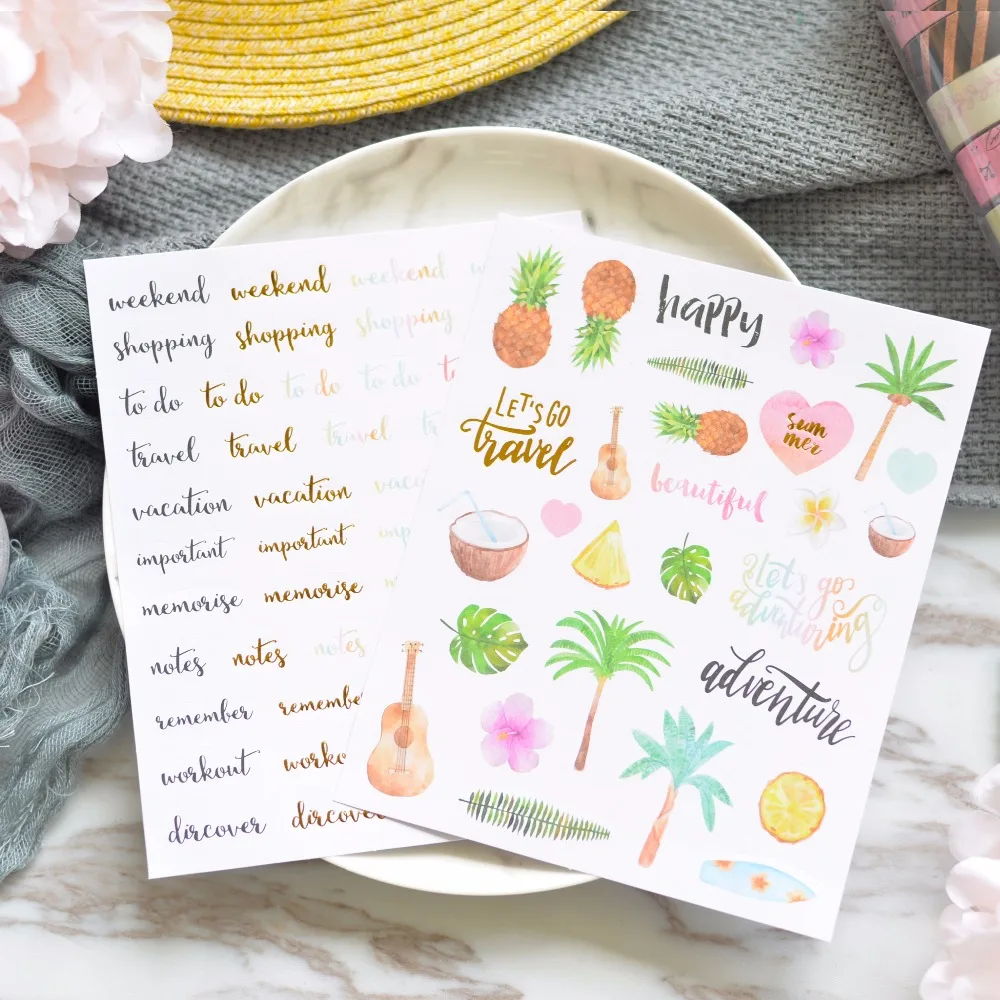 weekend weekend weekend
shopping shopping shopping
to do to do to do to do
travel travel travel
vacation vacation
important important
memorise memorise
notes notes notes
remember remember
workout
discover discover
happy
LET'S GO
travel
sum
mer
beautiful
Let's go
adventuring
adventure